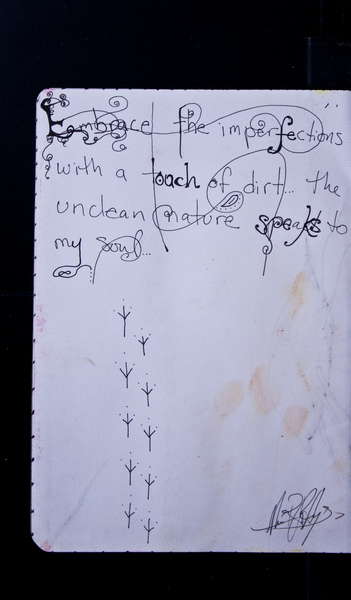 Embrace the imperfections
with a touch of dirt... the
unclean nature speaks to
my soul...